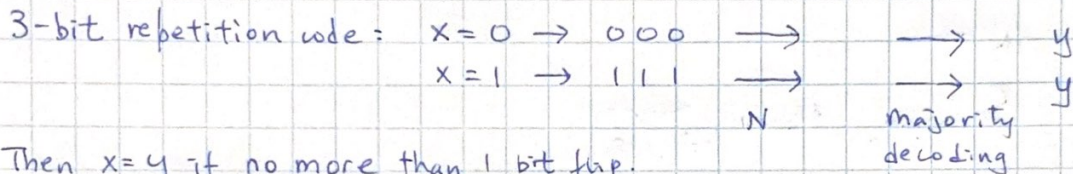 3-bit repetition code: x=0 → 000 → → y
x=1 → 111 → → y
N majority
decoding
Then x=y if no more than 1 bit flip.